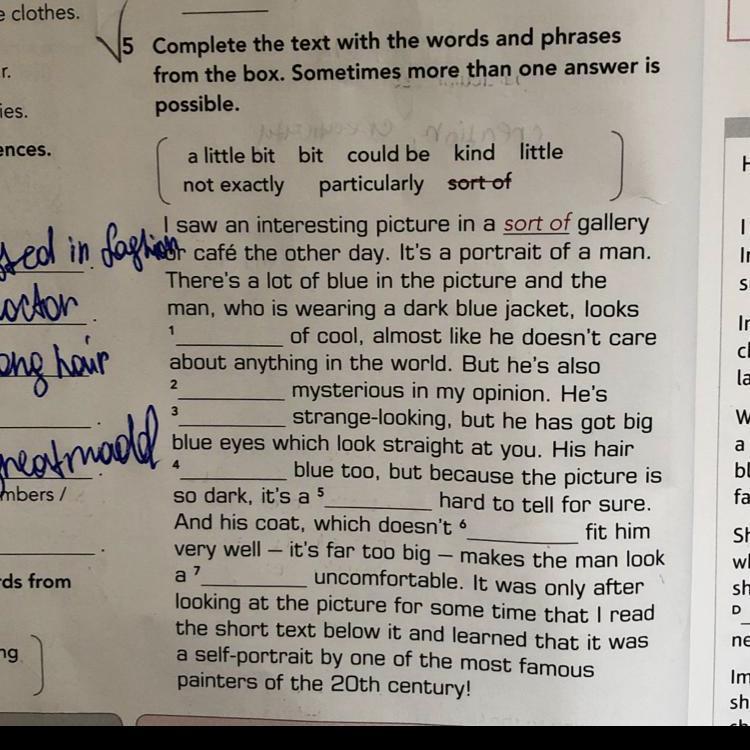 e clothes.
r.
ies.
ences.
ssed in fashion
octor
ong hair
mbers /
rds from
ng
5 Complete the text with the words and phrases
from the box. Sometimes more than one answer is
possible.
a little bit bit could be kind little
not exactly particularly sort of
I saw an interesting picture in a sort of gallery
or café the other day. It's a portrait of a man.
There's a lot of blue in the picture and the
man, who is wearing a dark blue jacket, looks
1 __________ of cool, almost like he doesn't care
about anything in the world. But he's also
2 __________ mysterious in my opinion. He's
3 __________ strange-looking, but he has got big
blue eyes which look straight at you. His hair
4 __________ blue too, but because the picture is
so dark, it's a 5 __________ hard to tell for sure.
And his coat, which doesn't 6 __________ fit him
very well – it's far too big – makes the man look
a 7 __________ uncomfortable. It was only after
looking at the picture for some time that I read
the short text below it and learned that it was
a self-portrait by one of the most famous
painters of the 20th century!
H
I
In
s
In
cl
la
W
a
bl
fa
Sh
wl
sh
D
ne
Im
sh